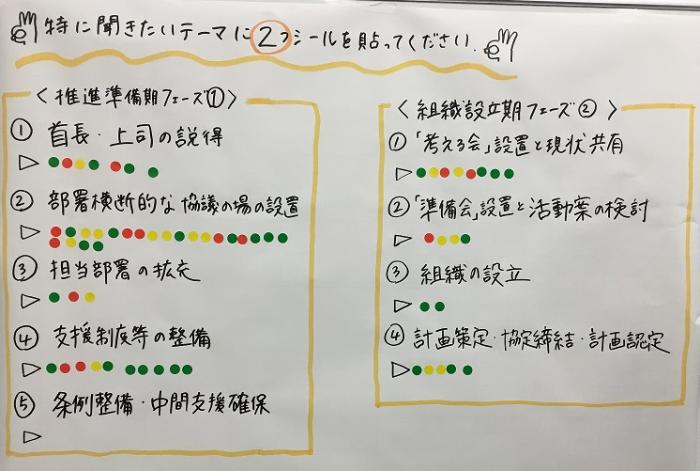 特に聞きたいテーマに2つシールを貼ってください.
<推進準備期フェーズ①>
① 首長・上司の説得
② 部署横断的な協議の場の設置
③ 担当部署の拡充
④ 支援制度等の整備
⑤ 条例整備・中間支援確保
<組織設立期フェーズ②>
①「考える会」設置と現状共有
②「準備会」設置と活動案の検討
③ 組織の設立
④ 計画策定・協定締結・計画認定